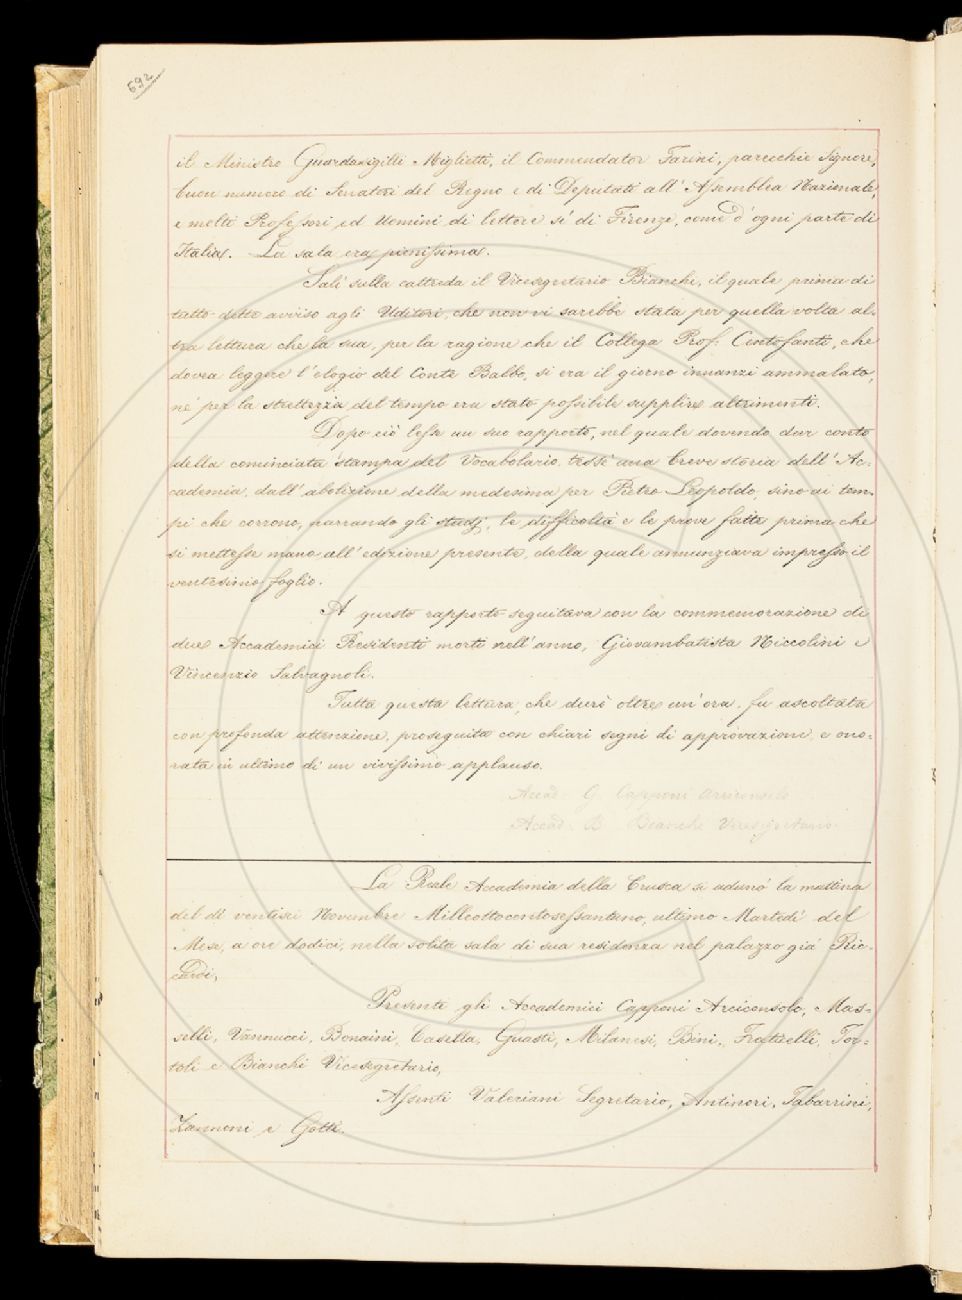 692
il Ministro Guardasigilli Miglietti, il Commendator Farini, parecchie Signore,
buon numero di Senatori del Regno e di Deputati all'Assemblea Nazionale,
e molti Professori ed Uomini di lettere sì di Firenze, come d'ogni parte di
Italia. La sala era pienissima.
Salì sulla cattreda il Vicesegretario Bianchi, il quale prima di
tutto dette avviso agli Uditori, che non vi sarebbe stata per quella volta al-
tra lettura che la sua, per la ragione che il Collega Prof. Centofanti, che
dovea leggere l'elogio del Conte Balbo, si era il giorno innanzi ammalato,
nè per la strettezza del tempo era stato possibile supplire altrimenti.
Dopo ciò lesse un suo rapporto, nel quale dovendo dar conto
della cominciata stampa del Vocabolario, tessè una breve storia dell'Ac-
cademia, dall'abolizione della medesima per Pietro Leopoldo, sino ai tem-
pi che corrono, narrando gli studj, le difficoltà e le prove fatte prima che
si mettesse mano all'edizione presente, della quale annunziava impresso il
ventesimo foglio.
A questo rapporto seguitava con la commemorazione di
due Accademici Residenti morti nell'anno, Giovambatista Niccolini e
Vincenzio Salvagnoli.
Tutta questa lettura, che durò oltre un'ora, fu ascoltata
con profonda attenzione, proseguita con chiari segni di approvazione, e ono-
rata in ultimo di un vivissimo applauso.
Accad. G. Capponi Arciconsolo
Accad. B. Bianchi Vicesegretario.
La Reale Accademia della Crusca si adunò la mattina
del dì ventisei Novembre Milleottocentosessantuno, ultimo Martedì del
Mese, a ore dodici, nella solita sala di sua residenza nel palazzo già Ric-
cardi,
Presenti gli Accademici Capponi Arciconsolo, Mas-
selli, Vannucci, Bonaini, Casella, Guasti, Milanesi, Bini, Fraticelli, Tor-
toli e Bianchi Vicesegretario,
Assenti Valeriani Segretario, Antinori, Tabarrini,
Zannoni e Gotti.